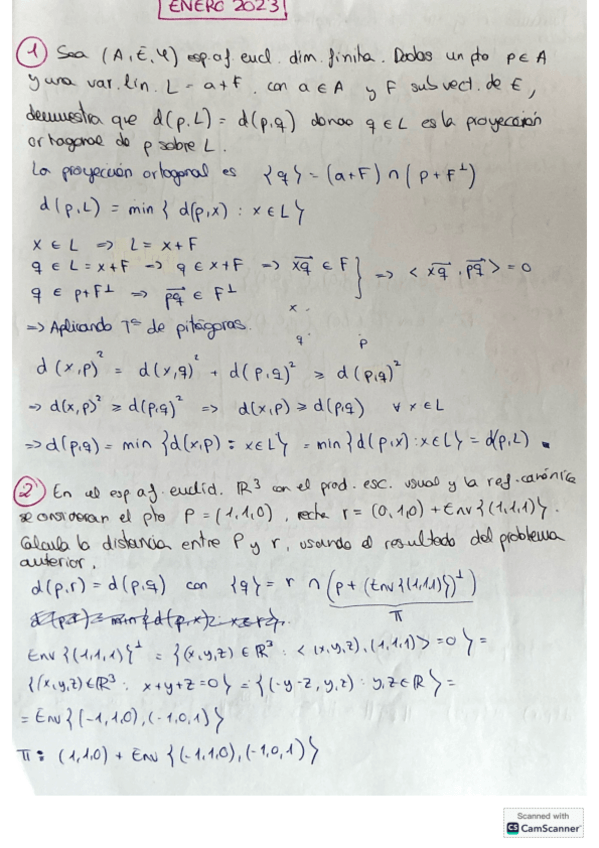 ENERO 2023
1 Sea (A, E, φ) esp. af. eucl. dim. finita. Dados un pto p ∈ A
y una var. lin. L = a + F. con a ∈ A y F subvect. de E,
demuestra que d(p, L) = d(p, q) donde q ∈ L es la proyección
ortogonal de p sobre L.
La proyección ortogonal es {q} = (a+F) ∩ (p + F⊥)
d(p, L) = min { d(p,x) : x ∈ L }
x ∈ L ⇒ L = x + F
q ∈ L = x+F ⇒ q ∈ x+F ⇒ \overrightarrow{xq} ∈ F
q ∈ p+F⊥ ⇒ \overrightarrow{pq} ∈ F⊥ } ⇒ < \overrightarrow{xq}, \overrightarrow{pq} > = 0
x
q p
⇒ Aplicando Tª de pitágoras.
d(x,p)² = d(x,q)² + d(p,q)² ≥ d(p,q)²
⇒ d(x,p)² ≥ d(p,q)² ⇒ d(x,p) ≥ d(p,q) ∀ x ∈ L
⇒ d(p,q) = min {d(x,p) : x ∈ L} = min {d(p,x) : x ∈ L} = d(p,L) ▪
2 En el esp. af. euclid. ℝ³ con el prod. esc. usual y la ref. canónica
se consideran el pto P = (1,1,0), recta r = (0,1,0) + Env {(1,1,1)}.
Calcula la distancia entre P y r, usando el resultado del problema
anterior.
d(p,r) = d(p,q) con {q} = r ∩ (p + (Env {(1,1,1)})⊥)
π
Env {(1,1,1)}⊥ = {(x,y,z) ∈ ℝ³ : < (x,y,z), (1,1,1) > = 0 } =
{(x,y,z) ∈ ℝ³ : x+y+z = 0 } = {(-y-z, y, z) : y,z ∈ ℝ } =
= Env {(-1,1,0), (-1,0,1)}
π : (1,1,0) + Env {(-1,1,0), (-1,0,1)}
Scanned with
CS CamScanner